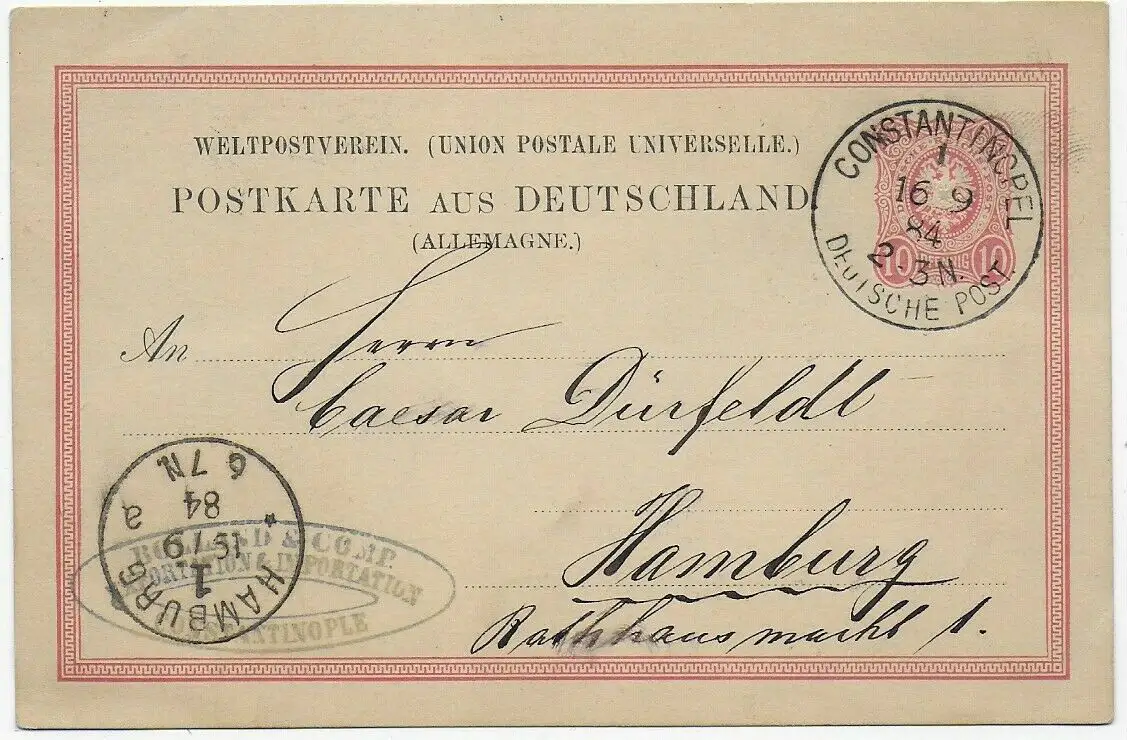 WELTPOSTVEREIN. (UNION POSTALE UNIVERSELLE.)
POSTKARTE AUS DEUTSCHLAND.
(ALLEMAGNE.)
CONSTANTINOPEL
1
16 9
84
2-3N.
DEUTSCHE POST.
10 PFENNIG 10
An Herrn
Caesar Dürfeldt
Hamburg
Rathhausmarkt 1.
HAMBURG
1
84
6 7N.
a
& COMP.
EXPORTATION & IMPORTATION
CONSTANTINOPLE